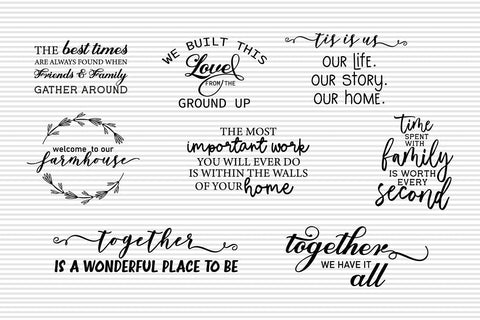 THE best times
ARE ALWAYS FOUND WHEN
Friends & Family
GATHER AROUND
WE BUILT THIS
Love
FROM THE
GROUND UP
tis is us
OUR LIFE.
OUR STORY.
OUR HOME.
welcome to our
farmhouse
THE MOST
important work
YOU WILL EVER DO
IS WITHIN THE WALLS
OF YOUR home
time
SPENT
WITH
family
IS WORTH
EVERY
second
together
IS A WONDERFUL PLACE TO BE
together
WE HAVE IT
all